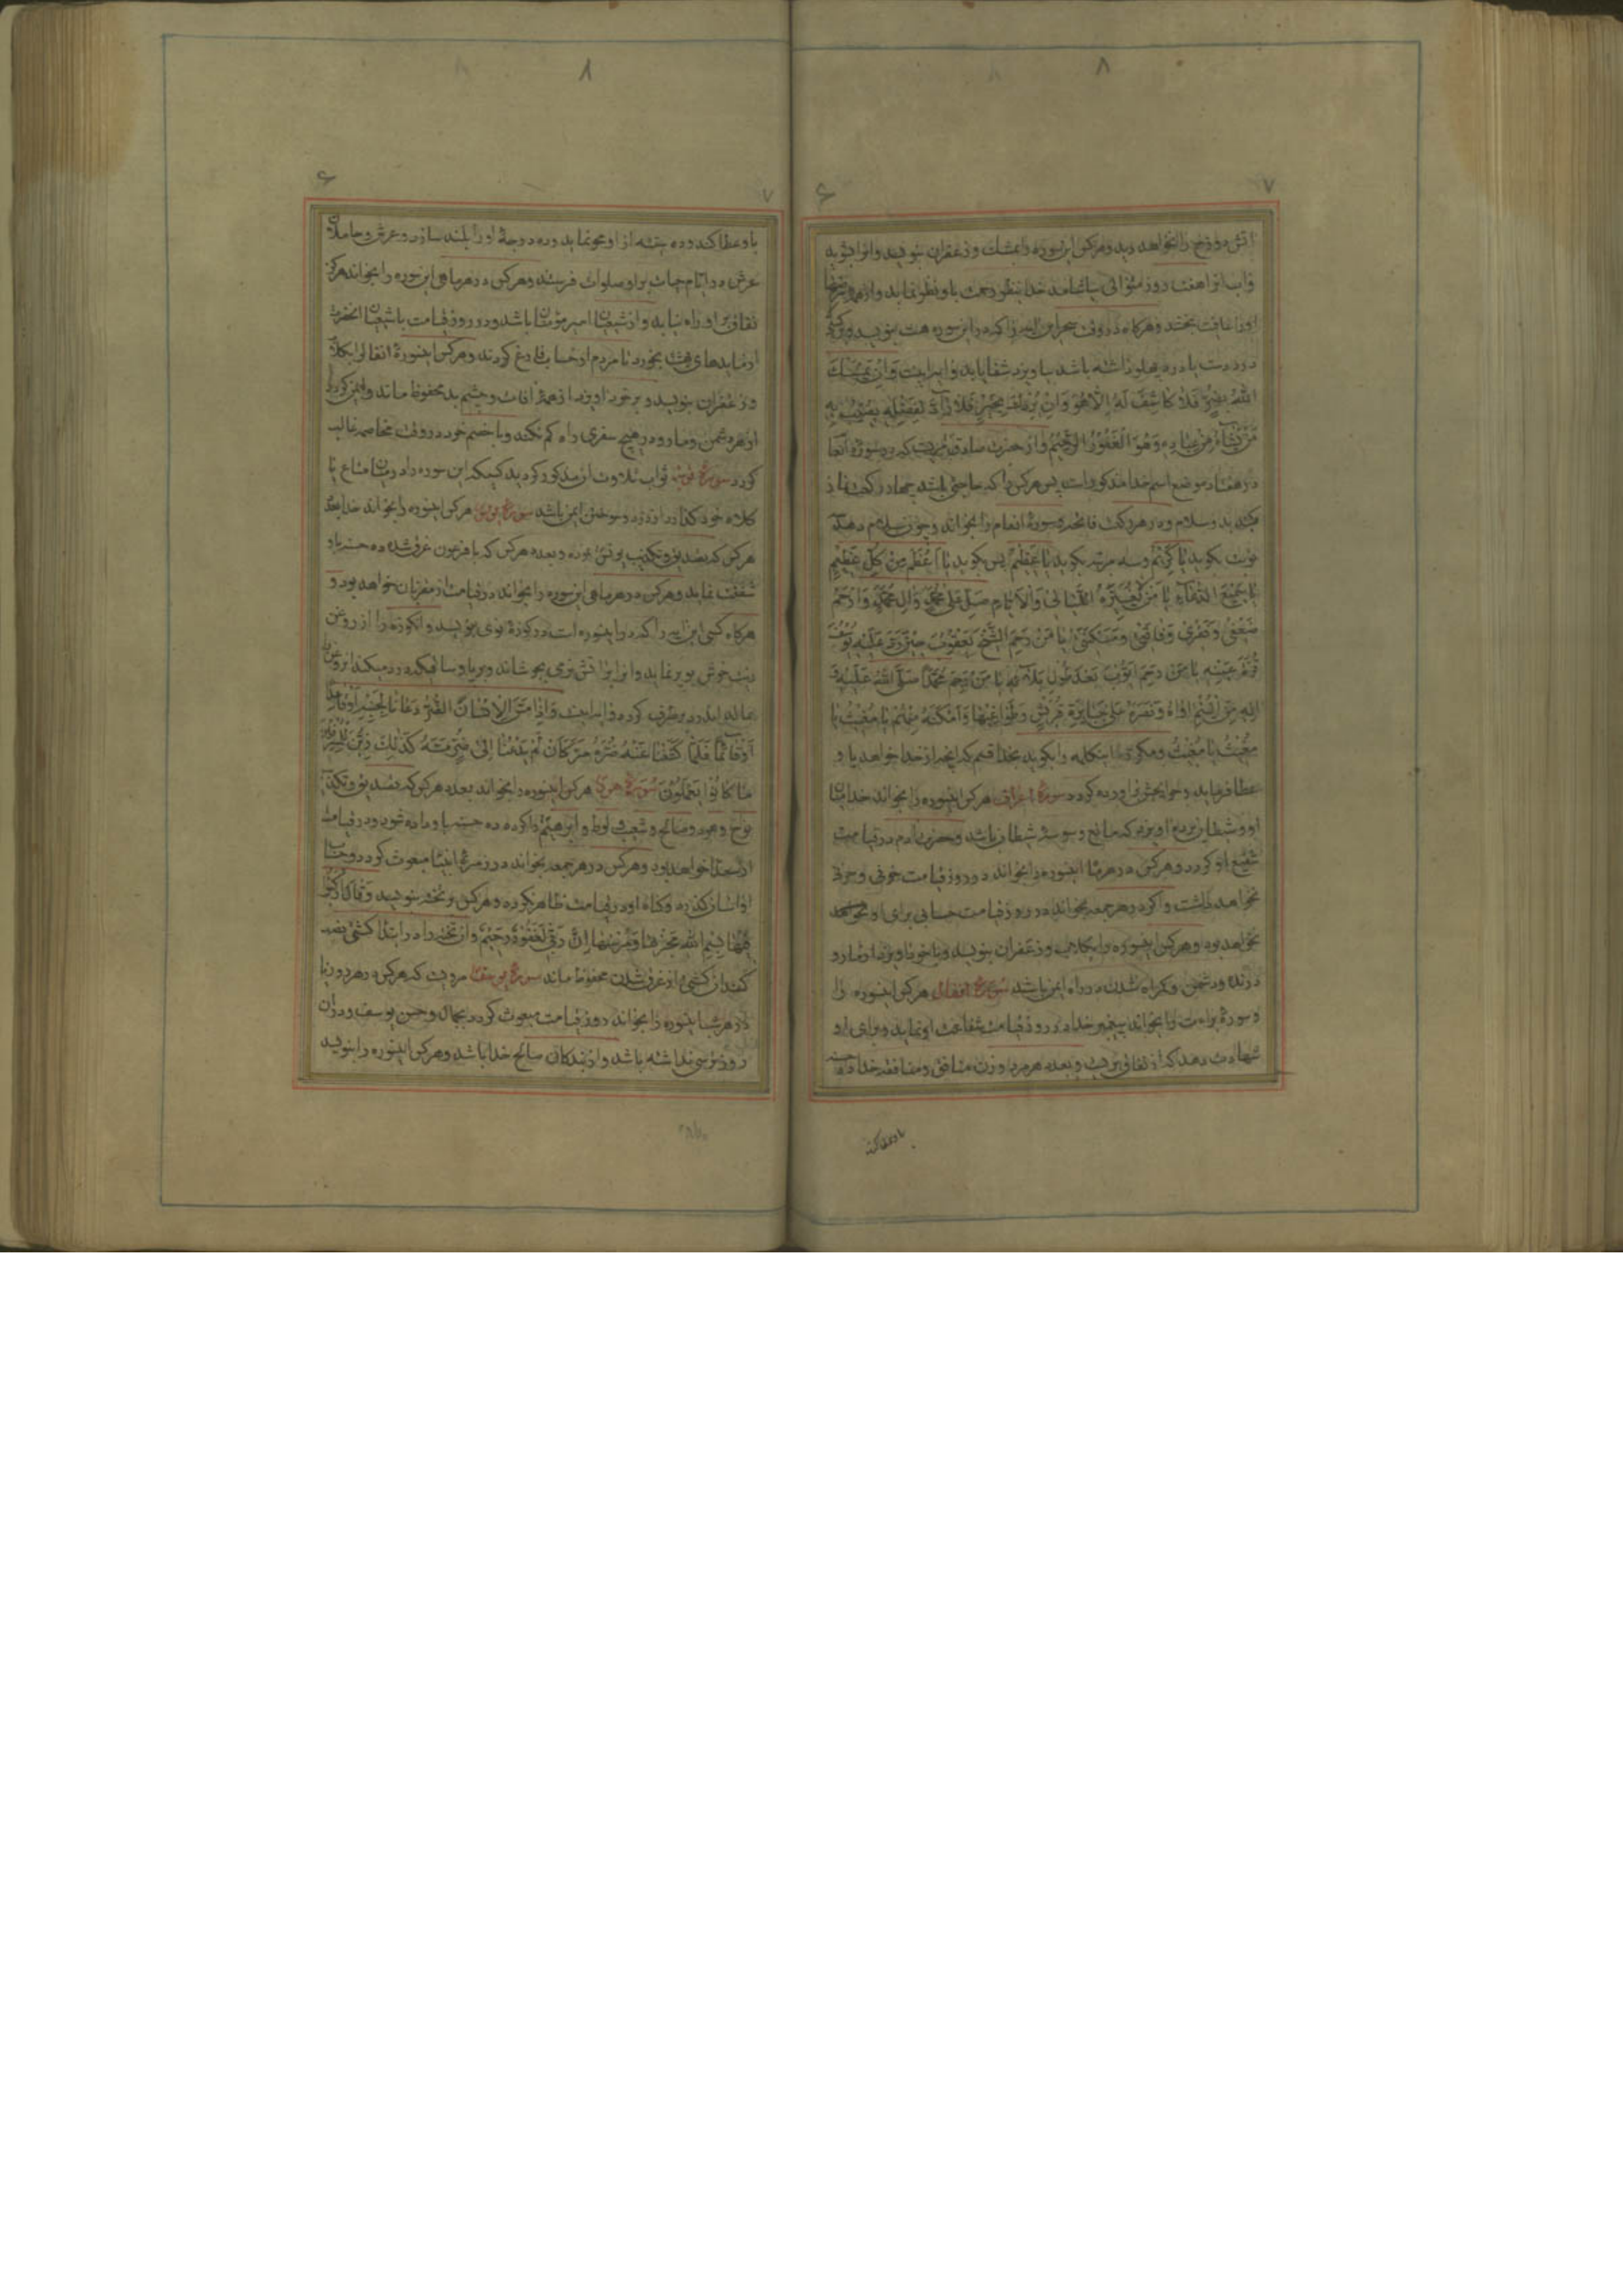 ۸
۷
۶
آتش دوزخ را نخواهد دید و هرکس این سوره را بمشک و زعفران بنویسد و
و آب آنرا هفت روز متوالی بیاشامد خدا بنظر رحمت باو نظر نماید و از
او را عافیت بخشد و هرگاه در وقت سحر این آیه را که در این سوره هست بنویسد و
درد دست یا درد پهلو داشته باشد بیاویزد شفا یابد و آیه اینست وَاِنْ یَمْسَسْکَ
اللهُ بِضُرٍّ فَلاٰ کٰاشِفَ لَهُ اِلاّٰ هُوَ وَاِنْ یُرِدْکَ بِخَیْرٍ فَلاٰ رٰادَّ لِفَضْلِهِ یُصیٖبُ بِهِ
مَنْ یَشٰاءُ مِنْ عِبٰادِهِ وَهُوَ الْغَفُورُ الرَّحیٖمُ و از حضرت صادق مرویست که در سوره انعام
در هفتاد موضع اسم خدا مذکور است پس هرکس را که حاجتی باشد چهار رکعت نماز
بکند بدو سلام و در هر رکعت فاتحه و سورهٔ انعام را بخواند و چون سلام دهد
نوبت بگوید یٰا کَریٖمُ و سه مرتبه بگوید یٰا عَظیٖمُ پس بگوید یٰا اَعْظَمَ مِنْ کُلِّ عَظیٖمٍ
یٰا سَمیٖعَ الدُّعٰاءِ یٰا مَنْ لاٰ تُغَیِّرُهُ اللَّیٰالیٖ وَالْاَیّٰامُ صَلِّ عَلیٰ مُحَمَّدٍ وَاٰلِ مُحَمَّدٍ وَارْحَمْ
ضَعْفیٖ وَفَقْریٖ وَفٰاقَتیٖ وَمَسْکَنَتیٖ یٰا مَنْ رَحِمَ الشَّیْخَ یَعْقُوبَ حیٖنَ رَدَّ عَلَیْهِ یُوسُفَ
قُرَّةَ عَیْنِهِ یٰا مَنْ رَحِمَ اَیُّوبَ بَعْدَ طُولِ بَلاٰئِهِ یٰا مَنْ رَحِمَ مُحَمَّداً صَلَّی اللهُ عَلَیْهِ وَ
اٰلِهِ مِنَ الْیُتْمِ اٰوٰاهُ وَنَصَرَهُ عَلیٰ جَبٰابِرَةِ قُرَیْشٍ وَطَوٰاغیٖتِهٰا وَاَمْکَنَهُ مِنْهُمْ یٰا مُغیٖثُ یٰا
مُغیٖثُ یٰا مُغیٖثُ و مکرر اینکلمه را بگوید بخدا قسم که آنچه از خدا خواهد باو
عطا فرماید و حوایجش برآورده گردد سورهٔ اعراف هرکس اینسوره را بخواند خدا میان
او و شیطان پردهٔ آویزد که مانع وسوسهٔ شیطان باشد و حضرت آدم در قیامت
شفیع او گردد و هرکس در هر ماه اینسوره را بخواند در روز قیامت خوفی و حزنی
نخواهد داشت و اگر در هر جمعه بخواند در روز قیامت حسابی برای او
نخواهد بود و هرکس اینسوره را بگلاب و زعفران بنویسد و با خود بیاویزد از مار و
درنده و دشمن و گمراه شدن در راه ایمن باشد سورهٔ انفال هرکس اینسوره را
و سورهٔ براءت را بخواند پیغمبر خدا در روز قیامت شفاعت او نماید و برای او
شهادت دهد که از نفاق بریست و بعدد هر مرد و زن منافق و منافقه خدا ده حسنه
باو عطا کند
۸
۶
۷
باو عطا کند و ده سیئه از او محو نماید و ده درجهٔ او را بلند سازد و عرش و حاملان
عرش در ایام حیات بر او صلوات فرستند و هرکس در هر ماهی این سوره را بخواند هرگز
نفاق بر او راه نیابد و از شیعیان امیر مؤمنان باشد و در روز قیامت با شیعیان آنحضرت
از مایدهای بهشت بخورد تا مردم از حساب فارغ گردند و هرکس اینسورهٔ انفال را بگلاب
و زعفران بنویسد و بر خود آویزد از همهٔ آفات و چشم بد محفوظ ماند و ایمن گردد
از هر دشمن و مار و در هیچ سفری راه گم نکند و با خصم خود در وقت مخاصمه غالب
گردد سورهٔ توبه ثواب تلاوت آن مذکور گردید کسیکه این سوره را در میان متاع یا
کلاه خود گذارد از دزد و سوختن ایمن باشد سورهٔ یونس هرکس اینسوره را بخواند خدا بعدد
هرکس که تصدیق و تکذیب یونس نموده و بعدد هرکس که با فرعون غرق شده ده حسنه باو
شفقت نماید و هرکس در هر ماهی این سوره را بخواند در قیامت از مقربان خواهد بود و
هرگاه کسی این آیه را که در اینسوره است در کوزهٔ نوی بنویسد و آنکوزه را از روغن
زیت خوش بو پر نماید و آنرا بر آتش نرمی بجوشاند و بر پا و ساقی که درد میکند
بمالد آندرد برطرف گردد و آیه اینست وَاِذٰا مَسَّ الْاِنْسٰانَ الضُّرُّ دَعٰانٰا لِجَنْبِهِ اَوْ قٰاعِداً
اَوْ قٰائِماً فَلَمّٰا کَشَفْنٰا عَنْهُ ضُرَّهُ مَرَّ کَاَنْ لَمْ یَدْعُنٰا اِلیٰ ضُرٍّ مَسَّهُ کَذٰلِکَ زُیِّنَ لِلْمُسْرِفیٖنَ
مٰا کٰانُوا یَعْمَلُونَ سورهٔ هود هرکس اینسوره را بخواند بعدد هرکس که تصدیق و تکذیب
نوح و هود و صالح و شعیب و لوط و ابرهیم را کرده ده حسنه باو داده شود و در قیامت
از سعدا خواهد بود و هرکس در هر جمعه بخواند در زمرهٔ انبیا مبعوث گردد و حساب
او آسان گذرد و گناه او در قیامت ظاهر نگردد و هرکس بر تخته بنویسد وَقٰالَ ارْکَبُوا
فیٖهٰا بِسْمِ اللهِ مَجْرٰیهٰا وَمُرْسٰیهٰا اِنَّ رَبّیٖ لَغَفُورٌ رَحیٖمٌ و آن تخته را در ابتدا کشتی نصب
کند آن کشتی از غرق شدن محفوظ ماند سورهٔ یوسف مرویست که هرکس در هر روز یا
در هر شب اینسوره را بخواند روز قیامت مبعوث گردد بجمال و حسن یوسف و در آن
روز ترسی نداشته باشد و از بندگان صالح خدا باشد و هرکس اینسوره را بنویسد